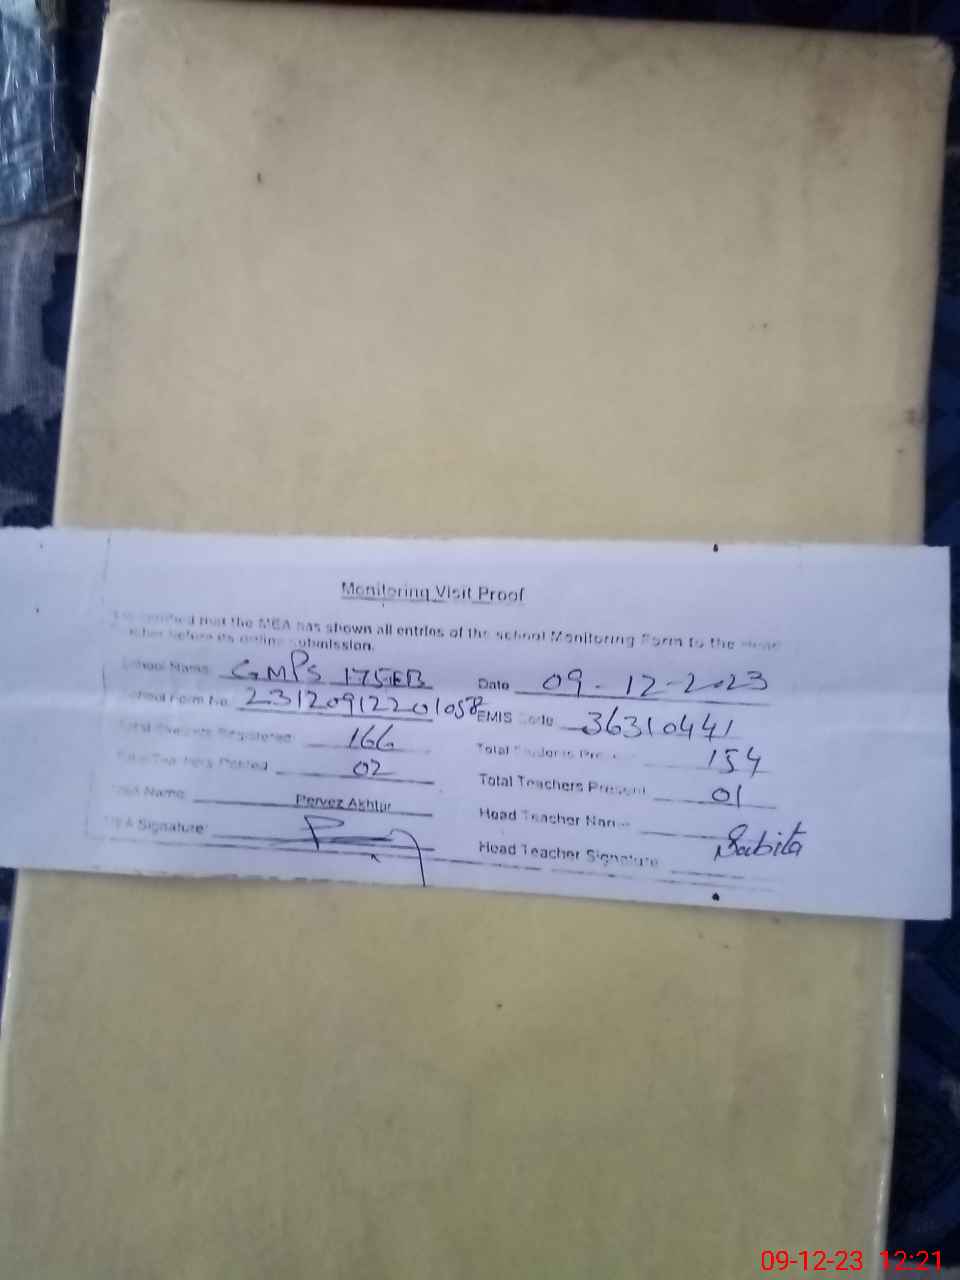 Monitoring Visit Proof
that the MEA has shown all entries of the school Monitoring Form to the
before its online submission.
School Name GMPS 175EB Date 09-12-2023
School Form No. 23120912201058 EMIS Code 36310441
Total Students Registered 166 Total Students 154
Total Teachers Posted 02 Total Teachers Present 01
MEA Name Pervez Akhtar Head Teacher Name
MEA Signature Head Teacher Signature Sabita
09-12-23 12:21